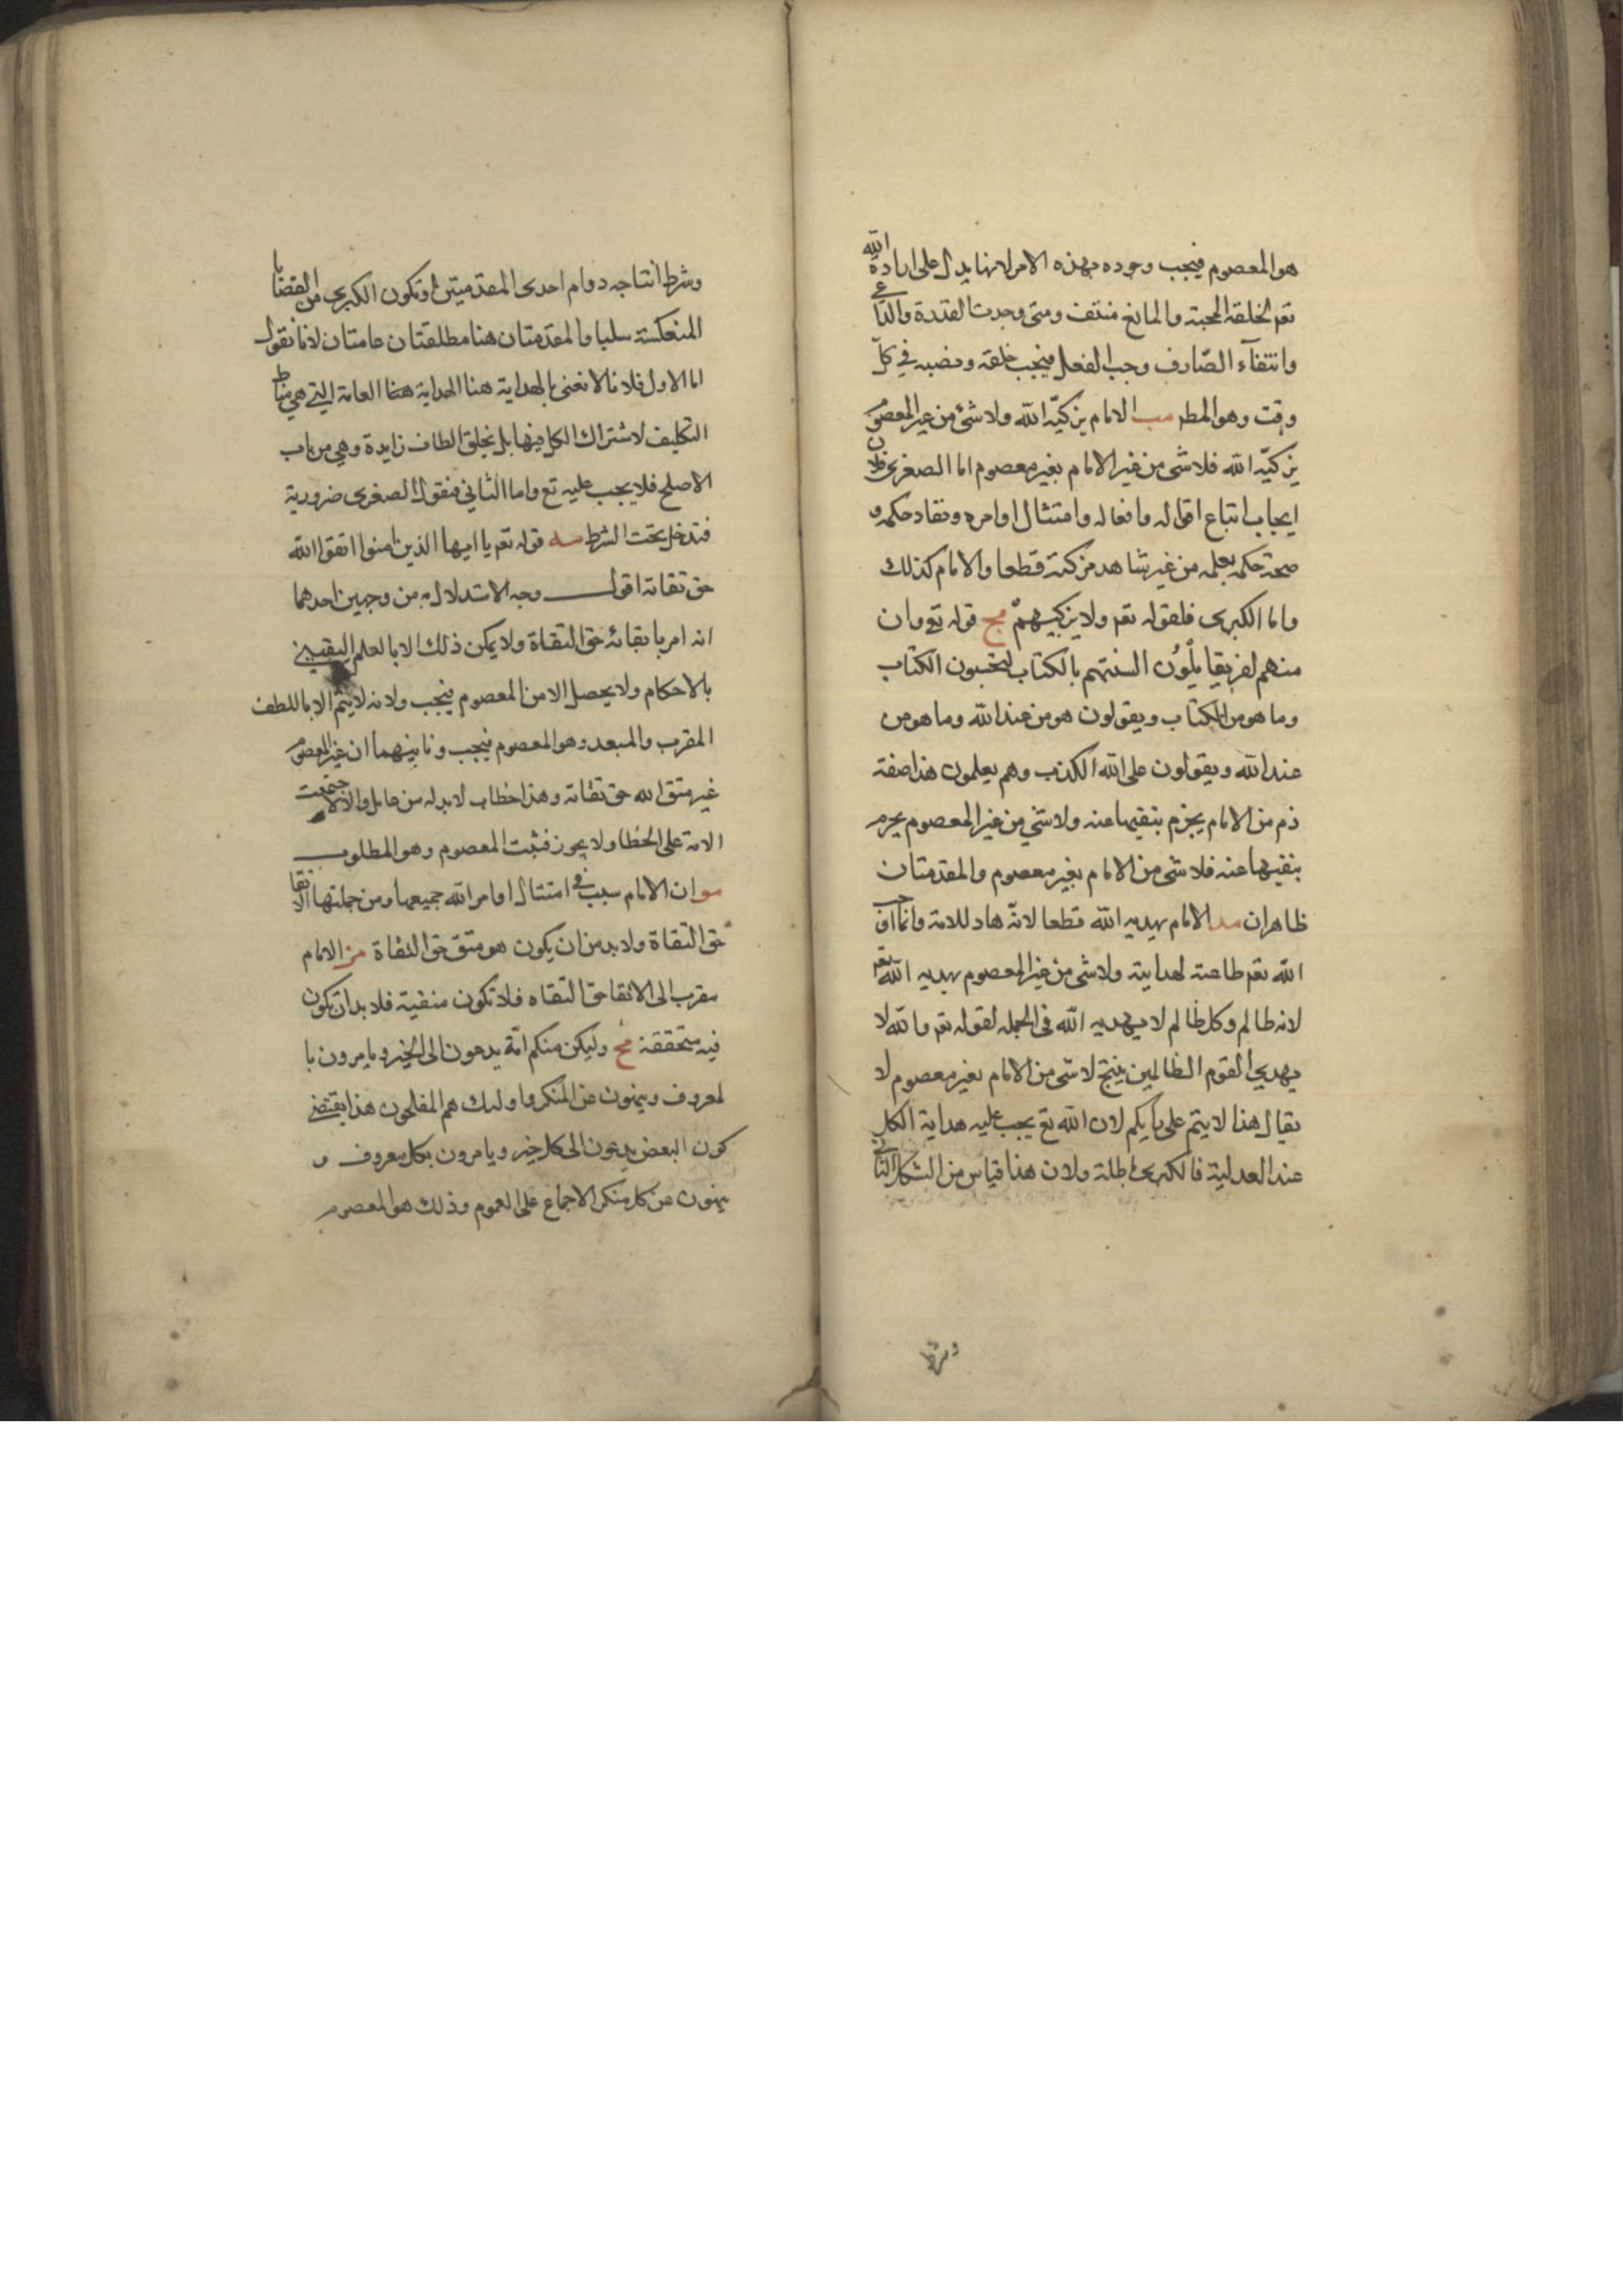 هو المعصوم فيجب وجوده بهذه الامر لانها يدل على ارادة الله
تعم لخلقه المحبته والمانع منتف ومتى وجدت القدرة والداعى
وانتفآء الصّارف وجب الفعل فيجب خلقه ونصبه في كلّ
وقت وهو المطر مب الامام يزكيّه الله ولا شئ من غير المعصوم
يزكيّه الله فلا شى من غير الامام بغير معصوم اما الصغرى فلان
ايجاب اتباع اقواله وافعاله وامتثال اوامره ونفاد حكمه و
صحة حكمه بعلمه من غير شاهد مزكية قطعا والامام كذلك
واما الكبرى فلقوله تعم ولا يزكيهم مج قوله تع وان
منهم لفريقا يلْوُن السنتهم بالكتاب لتحسبون الكتاب
وما هو من الكتاب ويقولون هو من عند الله وما هو من
عند الله ويقولون على الله الكذب وهم يعلمون هذا صفة
ذم من الامام يجزم بنفيها عنه ولا شي من غير المعصوم يجزم
بنفيها عنه فلا شى من الامام بغير معصوم والمقدمتان
ظاهران مد الامام يهديه الله قطعا لانّه هاد للامة وانما اوجب
الله تعم طاعته لهدايته ولا شى من غير المعصوم يهديه الله تعم
لانه ظالم وكل ظالم لا يهديه الله فى الجمله لقوله تعم والله لا
يهدي القوم الظالمين ينتج لا شى من الامام بغير معصوم لا
يقال هذا لا يتم على رايكم لان الله تع يجب عليه هداية الكل
عند العدلية فالكبرى باطلة ولان هنا قياس من الشكل الثاني
وشرط
وشرط انتاجه دوام احدى المقدميتن او تكون الكبرى من القضايا
المنعكسة سلبا والمقدمتان هنا مطلقتان عامتان لانا نقول
اما الاول فلانا لا نعنى بالهداية هنا الهداية هنا العامة التي هي مناط
التكليف لاشتراك الكل فيها بل بخلق الطاف زايدة وهي من باب
الاصلح فلا يجب عليه تع واما الثاني فنقول الصغرى ضرورية
فتدخل تحت الشرط مه قوله تعم يا ايها الذين امنوا اتقوا الله
حق تقاته اقول وجه الاستدلال به من وجهين احدهما
انه امر باتقائه حق التقاة ولا يمكن ذلك الا بالعلم اليقيني
بالاحكام ولا يحصل الا من المعصوم فيجب ولانه لا يتم الا باللطف
المقرب والمبعد وهو المعصوم فيجب وثانيهما ان غير المعصوم
غير متق الله حق تقاته وهذا خطاب لا بد له من عامل والا لاجتمعت
الامة على الخطا ولا يجوز فثبت المعصوم وهو المطلوب
مو ان الامام سبب في امتثال اوامر الله جميعها ومن جملتها الاتقا
حق التقاة ولا بد من ان يكون هو متق حق التقاة مز الامام
مقرب الى الاتقا حق التقاه فلا تكون منفية فلا بد ان تكون
فيه متحققة مح ولتكن منكم امّة يدعون الى الخير ويامرون با
لمعروف وينهون عن المنكر واولىك هم المفلحون هذا يقتضي
كون البعض يدعون الى كل خير ويامرون بكل معروف و
ينهون عن كل منكر الاجماع على العموم وذلك هو المعصوم